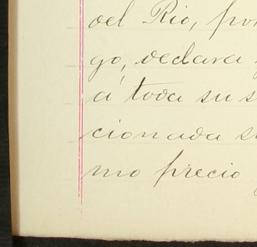 del Rio, por
go, declara
á toda su s
cionada su
mo precio